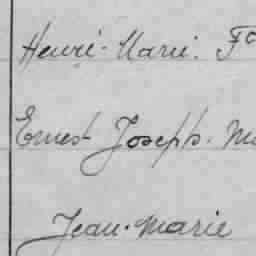 Henri-Marie. Fo
Ernest Joseph. Ma
Jean-Marie